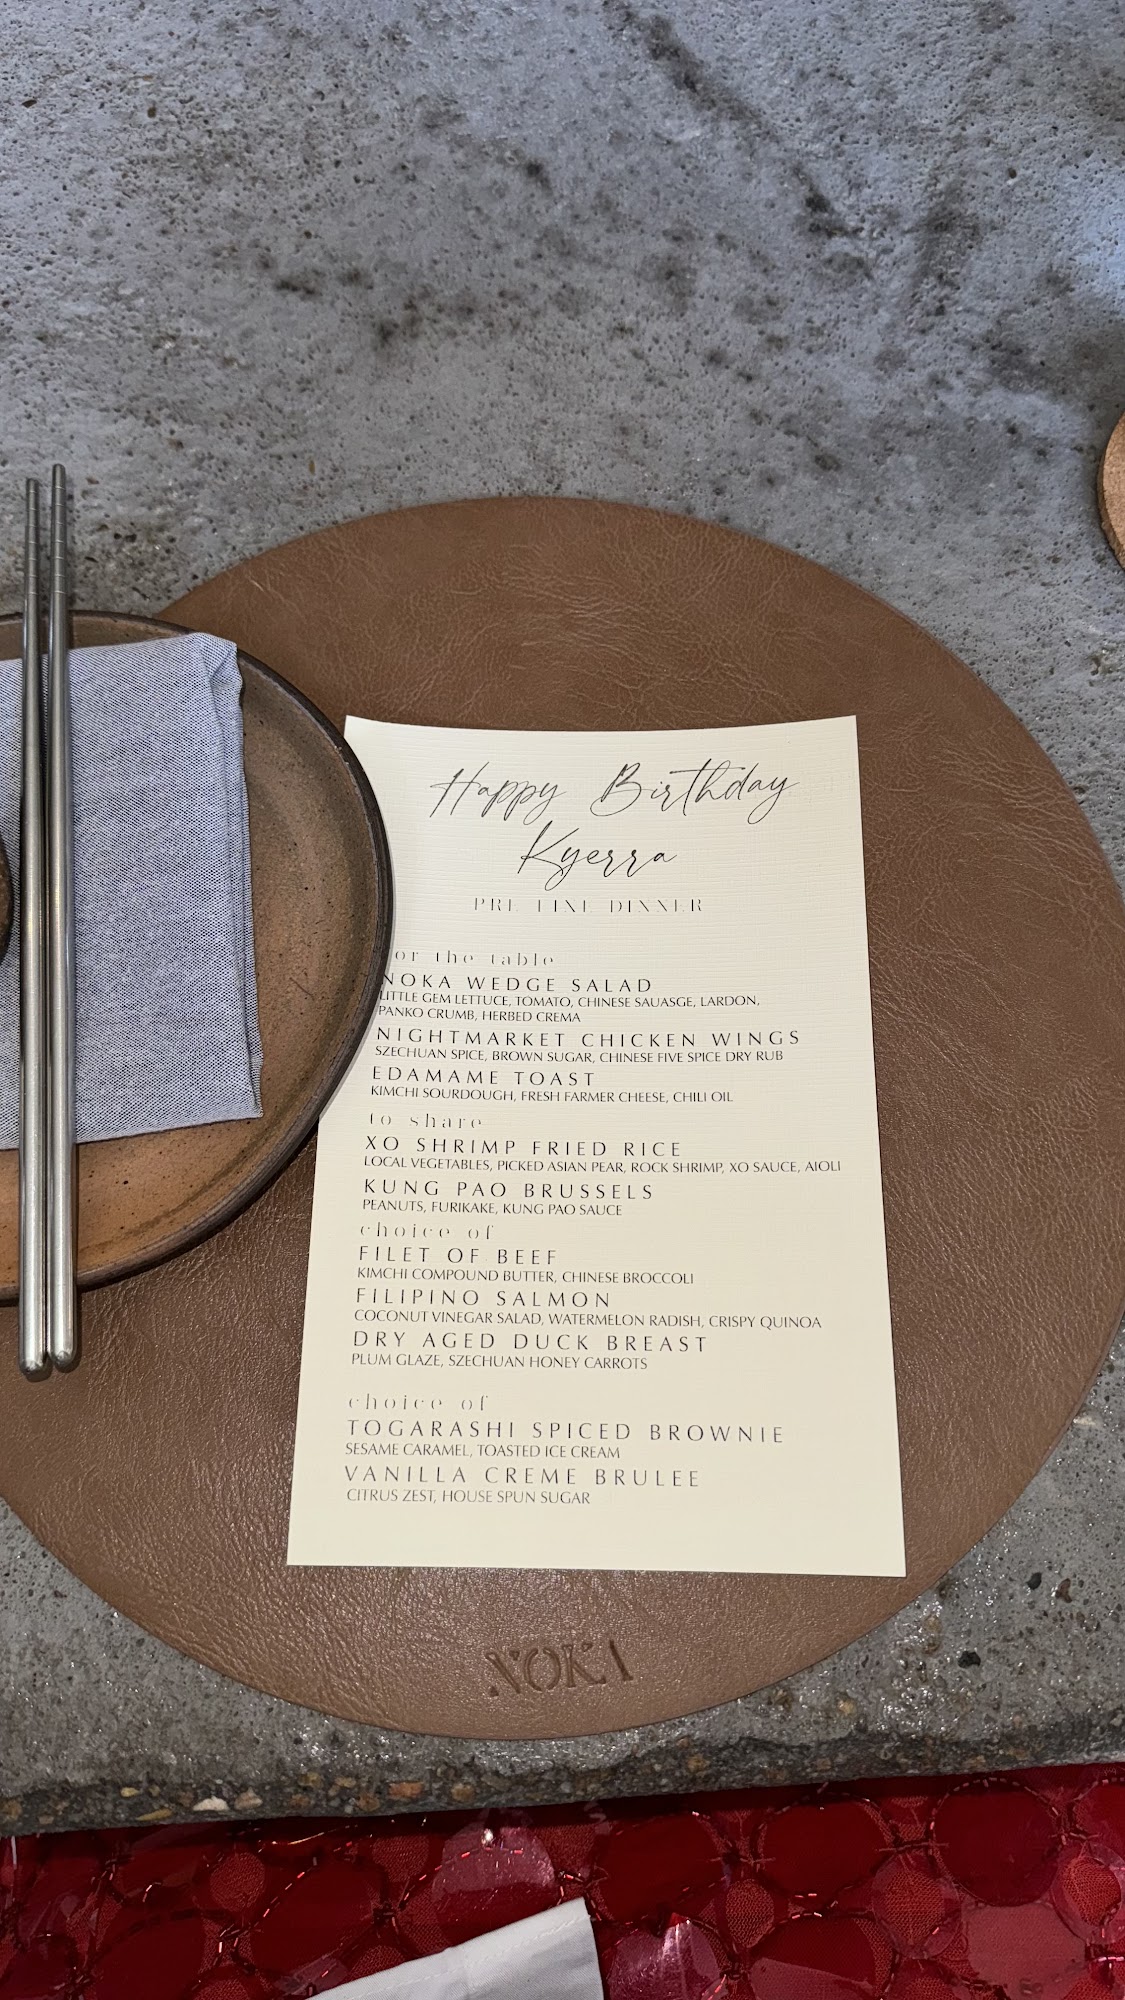 Happy Birthday
Kyerra
PRE FIXE DINNER
for the table
NOKA WEDGE SALAD
LITTLE GEM LETTUCE, TOMATO, CHINESE SAUASGE, LARDON,
PANKO CRUMB, HERBED CREMA
NIGHTMARKET CHICKEN WINGS
SZECHUAN SPICE, BROWN SUGAR, CHINESE FIVE SPICE DRY RUB
EDAMAME TOAST
KIMCHI SOURDOUGH, FRESH FARMER CHEESE, CHILI OIL
to share
XO SHRIMP FRIED RICE
LOCAL VEGETABLES, PICKED ASIAN PEAR, ROCK SHRIMP, XO SAUCE, AIOLI
KUNG PAO BRUSSELS
PEANUTS, FURIKAKE, KUNG PAO SAUCE
choice of
FILET OF BEEF
KIMCHI COMPOUND BUTTER, CHINESE BROCCOLI
FILIPINO SALMON
COCONUT VINEGAR SALAD, WATERMELON RADISH, CRISPY QUINOA
DRY AGED DUCK BREAST
PLUM GLAZE, SZECHUAN HONEY CARROTS
choice of
TOGARASHI SPICED BROWNIE
SESAME CARAMEL, TOASTED ICE CREAM
VANILLA CREME BRULEE
CITRUS ZEST, HOUSE SPUN SUGAR
NOKA